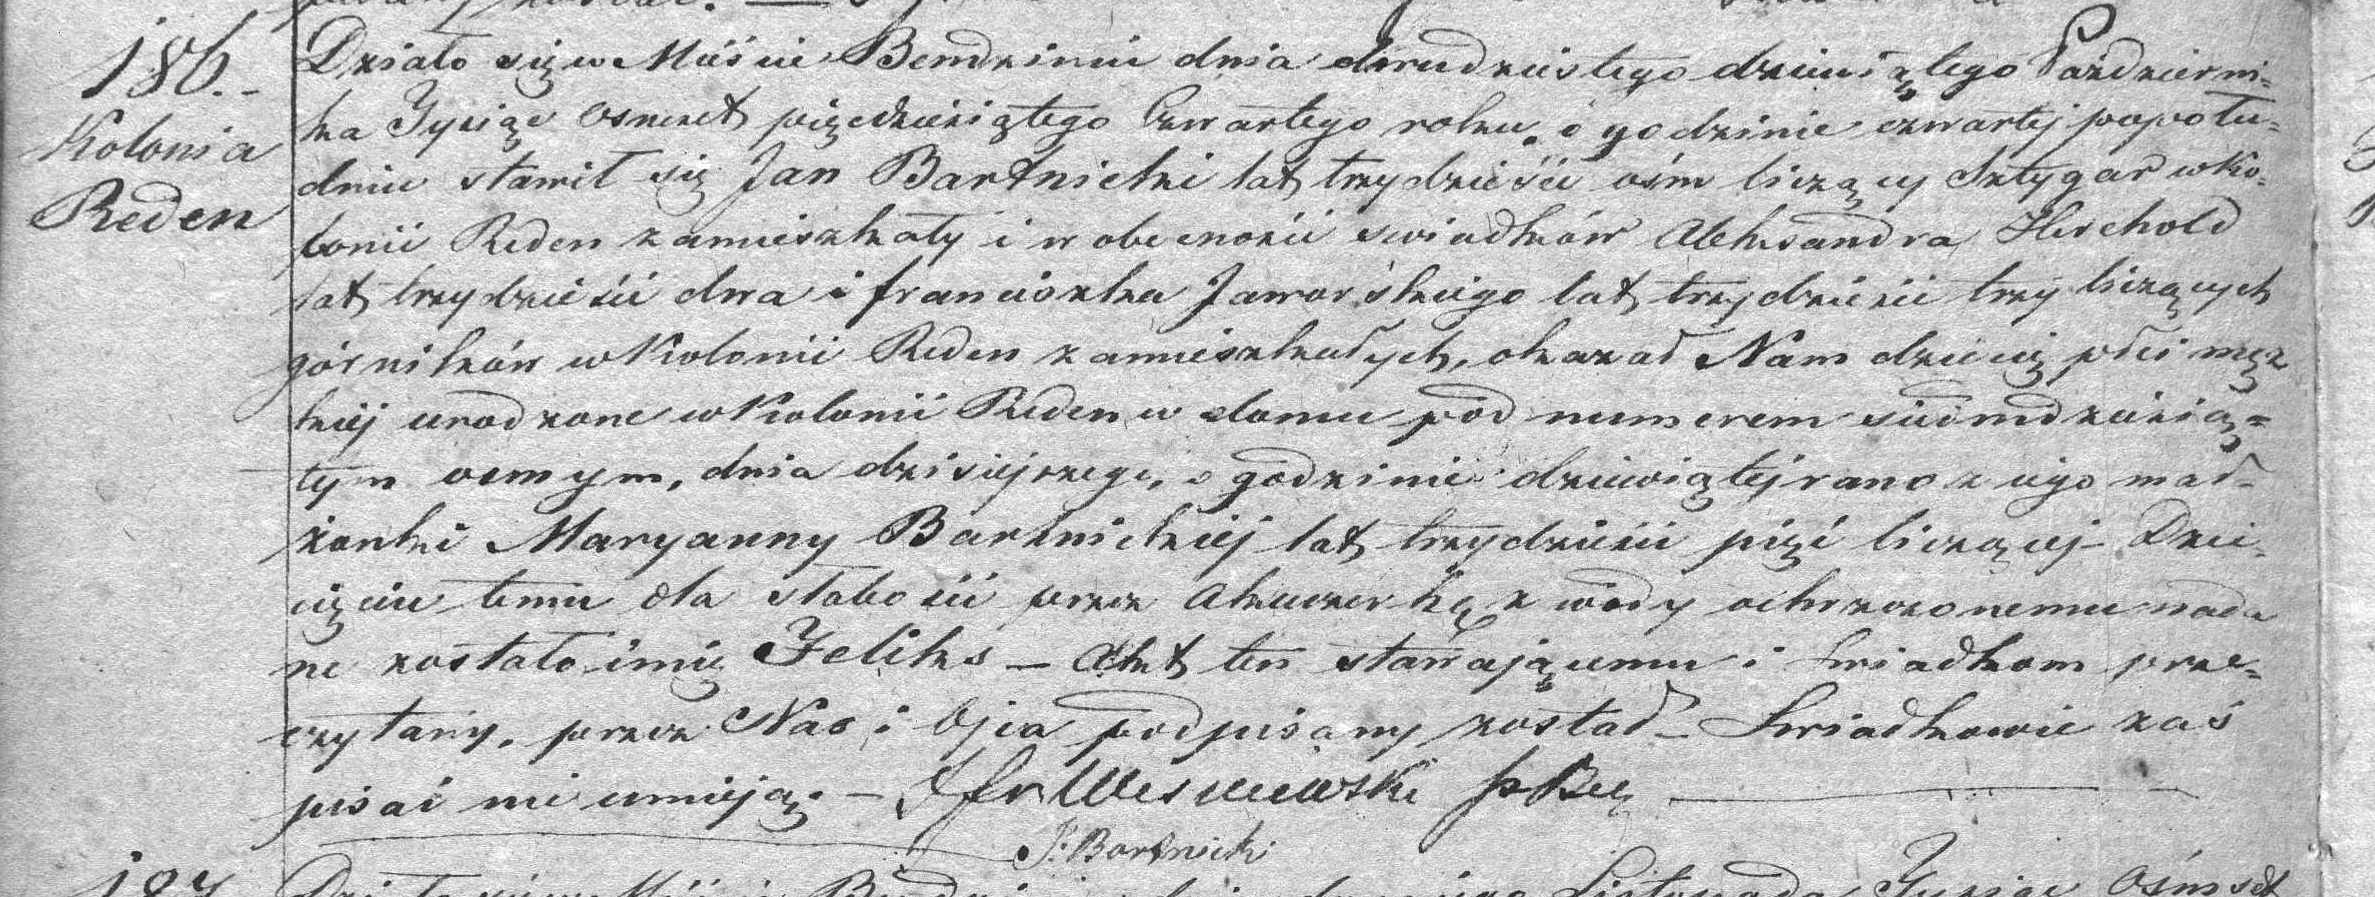 186.
Kolonia
Reden
Działo się w Mieście Bendzinie dnia dwudziestego dziewiątego Październi=
ka Tysiąc osmset pięćdziesiątego Czwartego roku, o godzinie czwartej popołu=
dniu stawił się Jan Bartnicki lat trzydzieści ośm liczący Sztygar w Ko=
lonii Reden zamieszkały i w obecności swiadków Aleksandra Herchold
lat trzydzieści dwa i franciszka Jaworskiego lat trzydzieści trzy liczących
górników w Kolonii Reden zamieszkałych, okazał Nam dziecię płci męz
kiej urodzone w Kolonii Reden w domu pod numerem siedmdziesią=
tym osmym, dnia dzisiejszego, o godzinie dziewiątej rano z iego mał-
żonki Maryanny Bartnickiej lat trzydzieści pięć liczącej - Dzie-
cięciu temu dla słabości przez Akuszerkę z wody ochrzczonemu nada
ne zostało imię Feliks — Akt ten stawającemu i Swiadkom prze=
czytany, przez Nas i Ojca podpisany został - Swiadkowie zaś
pisać nie umieją. —
J. Bartnicki
Działo się w Mieście
Listopada Tysiąc Ośmset